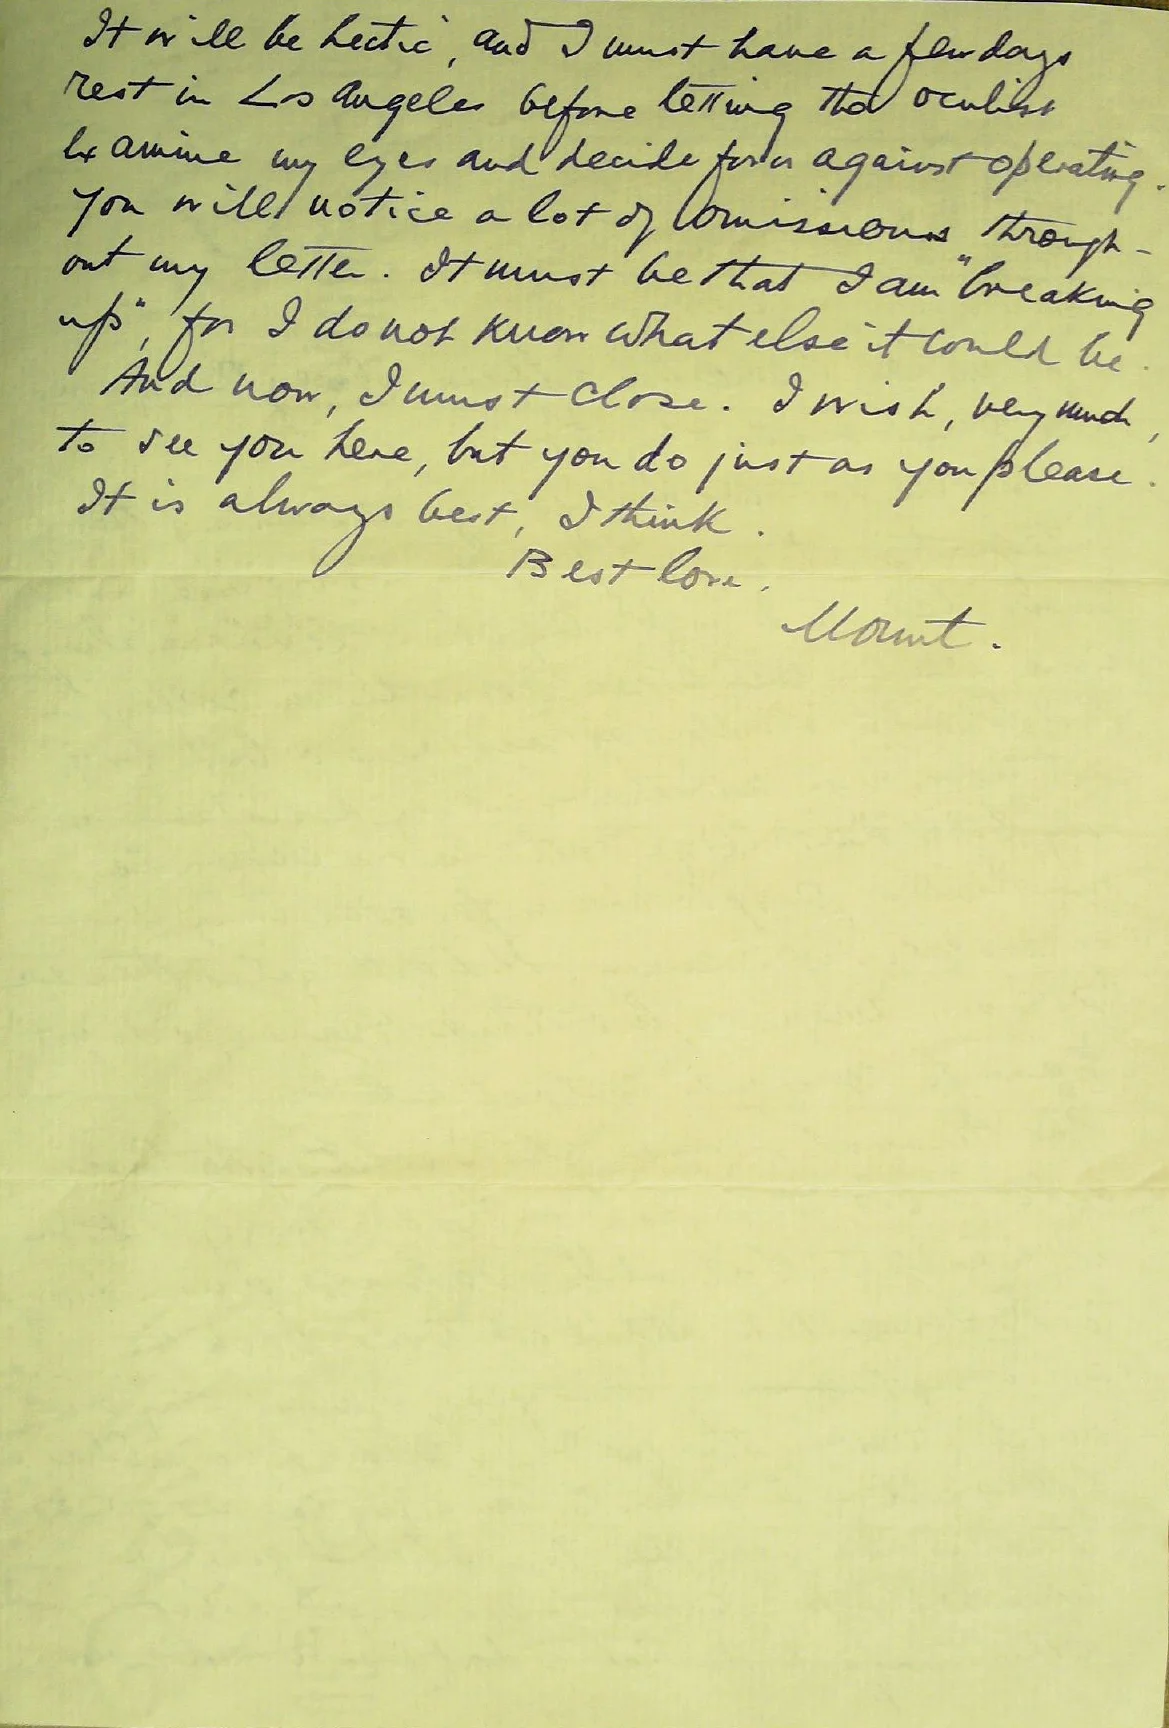 It will be hectic, and I must have a few days
rest in Los Angeles before letting the oculist
examine my eyes and decide for or against operating.
You will notice a lot of omissions through-
out my letter. It must be that I am "breaking
up", for I do not know what else it could be.
And now, I must close. I wish, very much,
to see you here, but you do just as you please.
It is always best, I think.
Best love.
Mount.